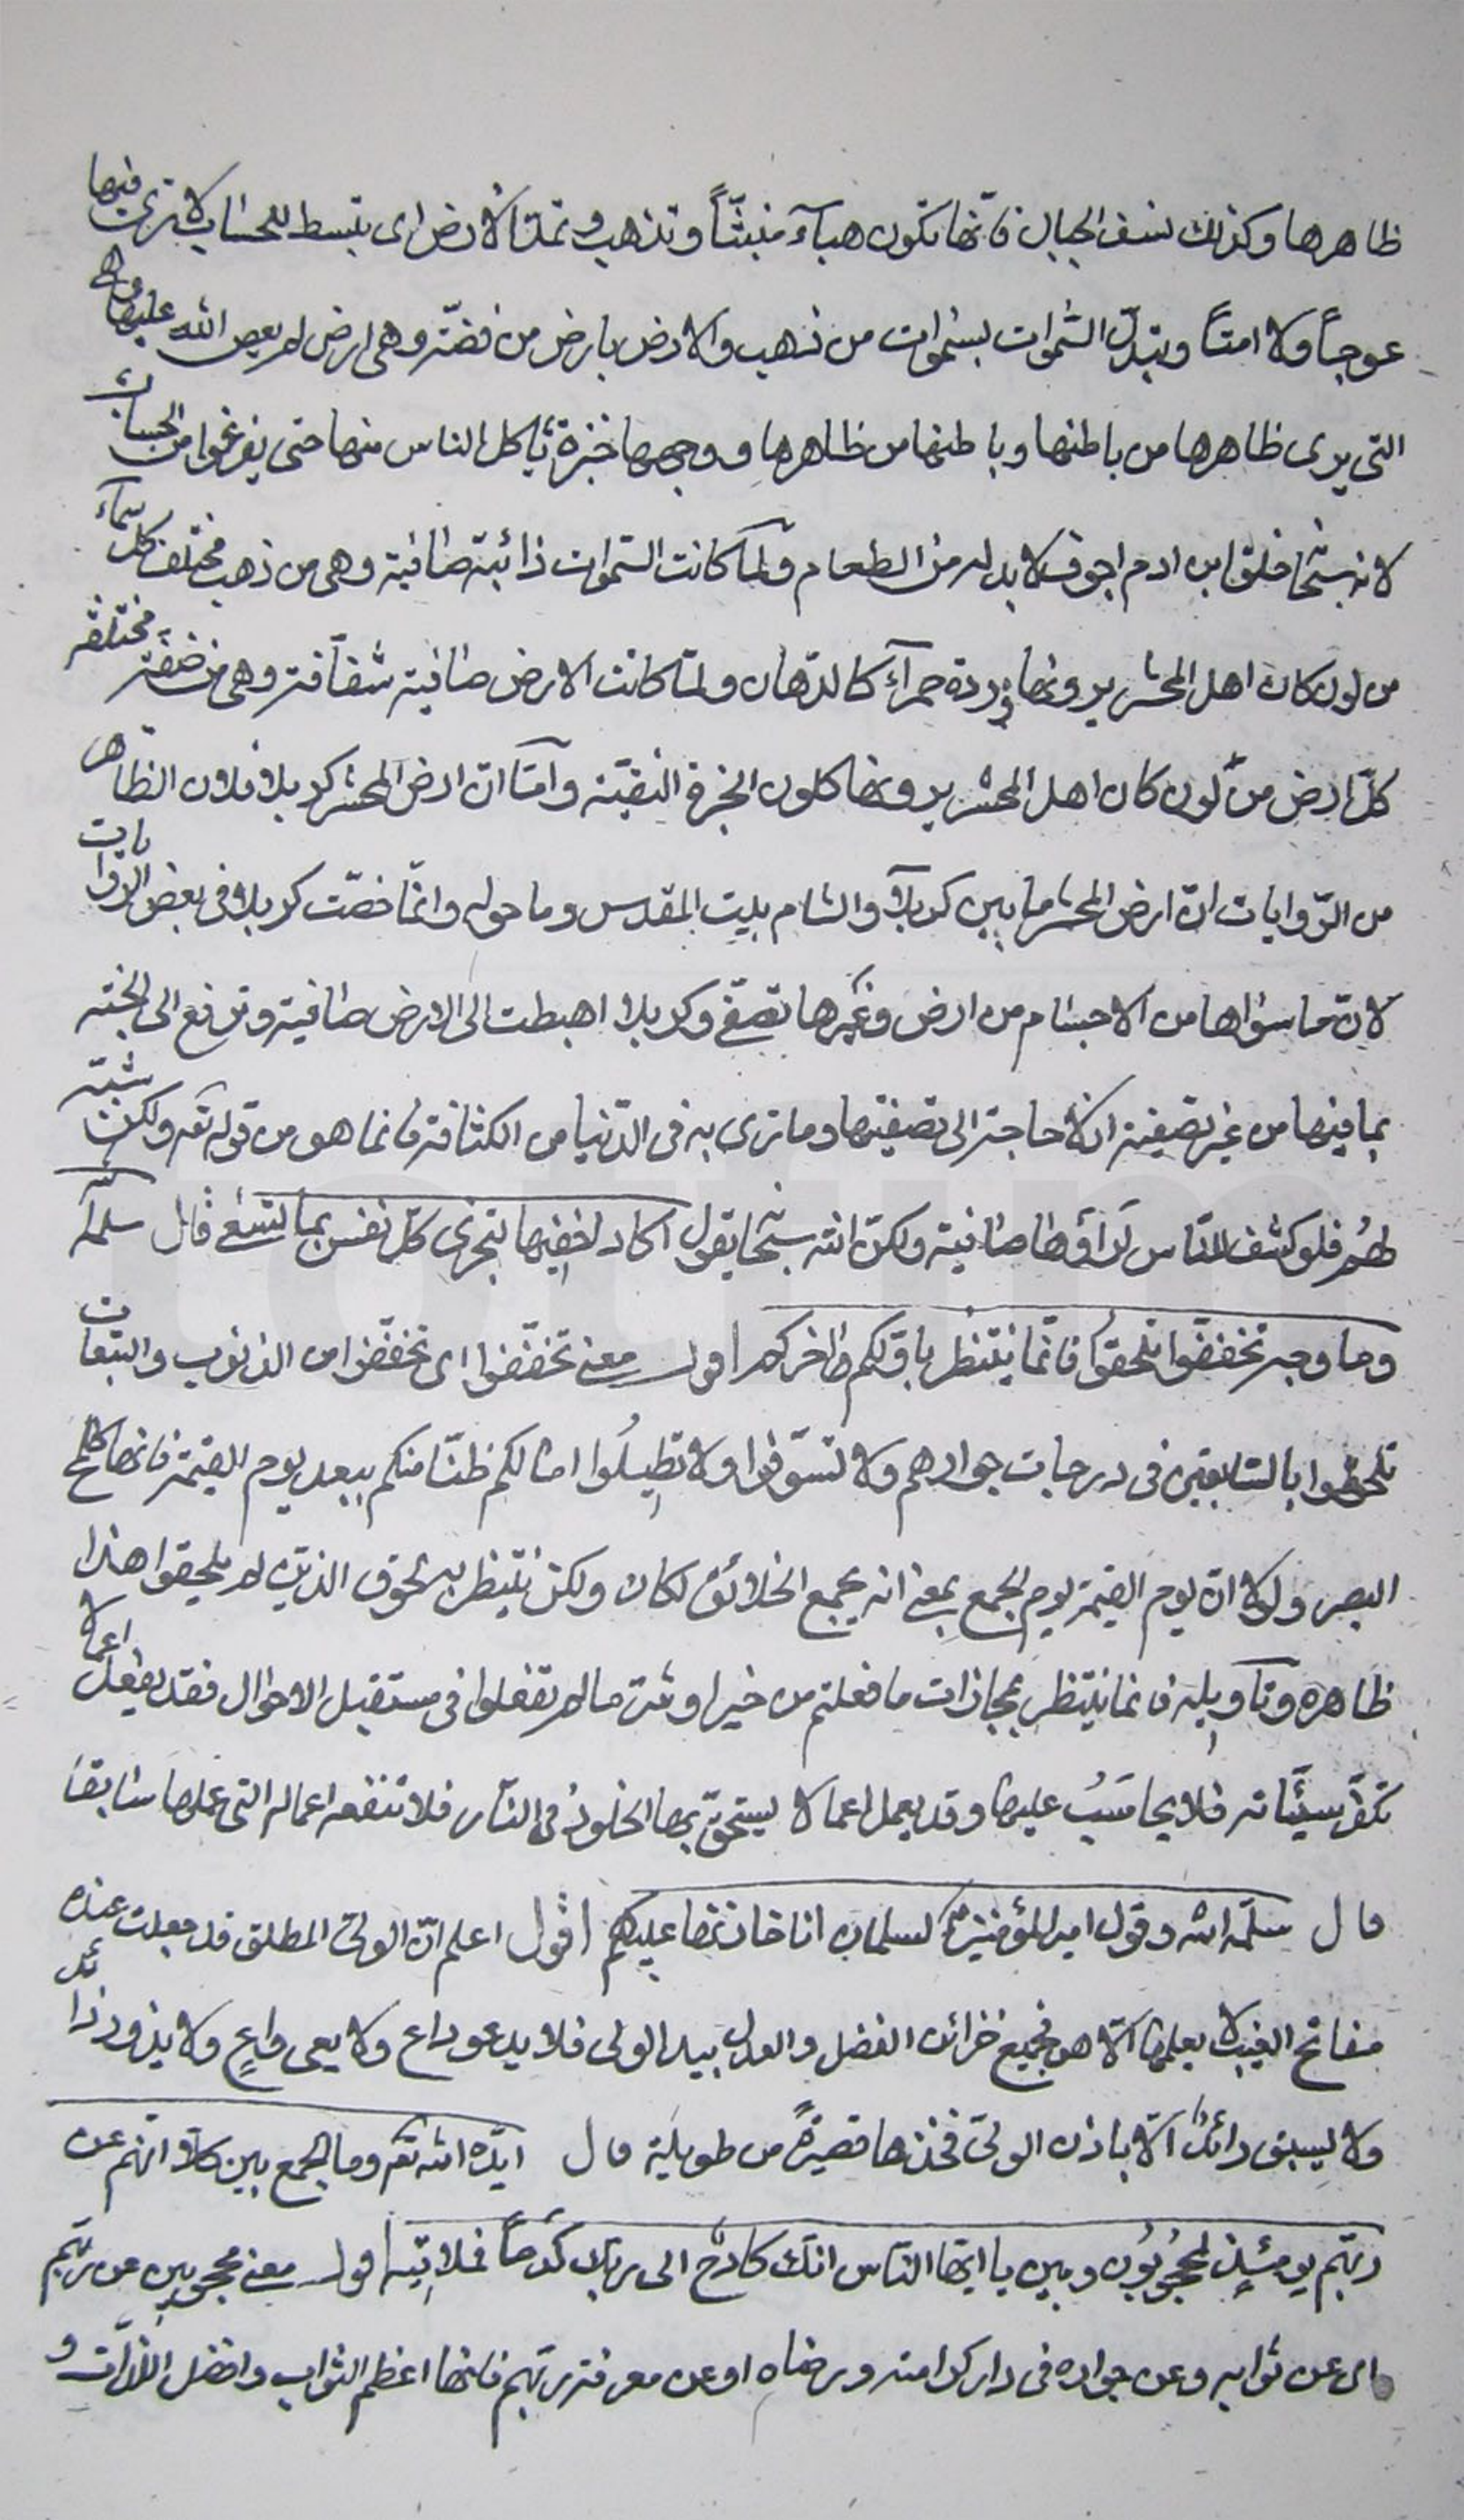 ظاهرها وكذلك نسف الجبال فانّها تكون هبآءً منبثّاً وتذهب وتمدّ الأرض اى يبسط للحساب لا ترى فيها
عوجاً ولا امتاً وتبدّل السّموات بسموات من ذهب والارض بارض من فضّة وهى ارض لم يعص اللّه عليها وهى
التى يرى ظاهرها من باطنها وباطنها من ظاهرها ووجهها خبزة يأكل الناس منها حتى يفرغوا من الحساب
لانه سبحانه خلق ابن ادم اجوف لا بد له من الطعام ولمّا كانت السّموات ذائبة صافية وهى من ذهب مختلف كل سمآء
من لون كان اهل المحشر يرونها وردة حمرآء كالدّهان ولمّا كانت الارض صافية شفّافة وهى من فضّة مختلفة
كلّ ارض من لون كان اهل المحشر يرونها كلون الخبزة النقيّة وامّا انّ ارض المحشر كربلا فلان الظّاهر
من الرّوايات انّ ارض المحشر ما بين كربلآ والشام بيت المقدس وما حوله وانّما خصّت كربلا فى بعض الروايات
لانّ ما سواها من الاجسام من ارض وغيرها تصفّى وكربلا اهبطت الى الارض صافية وترفع الى الجنّة
بما فيها من غير تصفية اذ لا حاجة الى تصفيتها وما ترى به فى الدّنيا من الكثافة فانما هو من قوله تعه ولكن شبّه
لهُم فلو كشف للنّاس لَرَأَوها صافية ولكنّ اللّه سبحا يقول اكاد اخفيها لتجزى كلّ نفس بما تسعى قال سلّمه اللّه
وما وجه تخفّفوا تلحقوا فانّما ينتظر باوّلكم اخركم اقول معنى تخفّفوا اى تخفّفوا من الذنوب والتبعات
تلحقوا بالسّابقين فى درجات جوارهم ولا تسوّفوا ولا تطيلُوا امالكم ظنّا منكم ببعد يوم القيمة فانها كلمح
البصر ولولا انّ يوم القيمة يوم الجمع بمعنى انه يجمع الخلائق لكان ولكن ينتظر به لحوق الذين لم يلحقوا هذا
ظاهره وتاويله فانما ينتظر بمجازات ما فعلتم من خير او شر ما لم تفعلوا فى مستقبل الاحوال فقد يفعل اعمالا
تكفّر سيّئاته فلا يحاسَبُ عليها وقد يعمل اعمالا يستحقّ بها الخلود فى النّار فلا تنفعه اعماله التى عملها سابقا
قال سلّمه اللّه وقول امير المؤمنين لسلمان انا خازنها عليكم اقول اعلم انّ الولىّ المطلق قد جعلت عنده
مفاتح الغيب لا يعلمها الّا هو فجميع خزائن الفضل والعدل بيد الولى فلا يدعو داع ولا يعى واعٍ ولا يذود ذائد
ولا يسبق الّا باذن الولىّ فخذها قصيرةً من طويلة قال ايّده اللّه تعه وما الجمع بين كلّا انّهم عن
ربّهم يومئذٍ لمحجُوبُون وبين يا ايّها النّاس انك كادح الى ربك كدحاً فملاقيه اقول معنى محجوبين عن ربّهم
اى عن ثوابه وعن جواره فى دار كرامته ورضاه او عن معرفة ربّهم فانها اعظم الثواب وافضل اللّذّات و